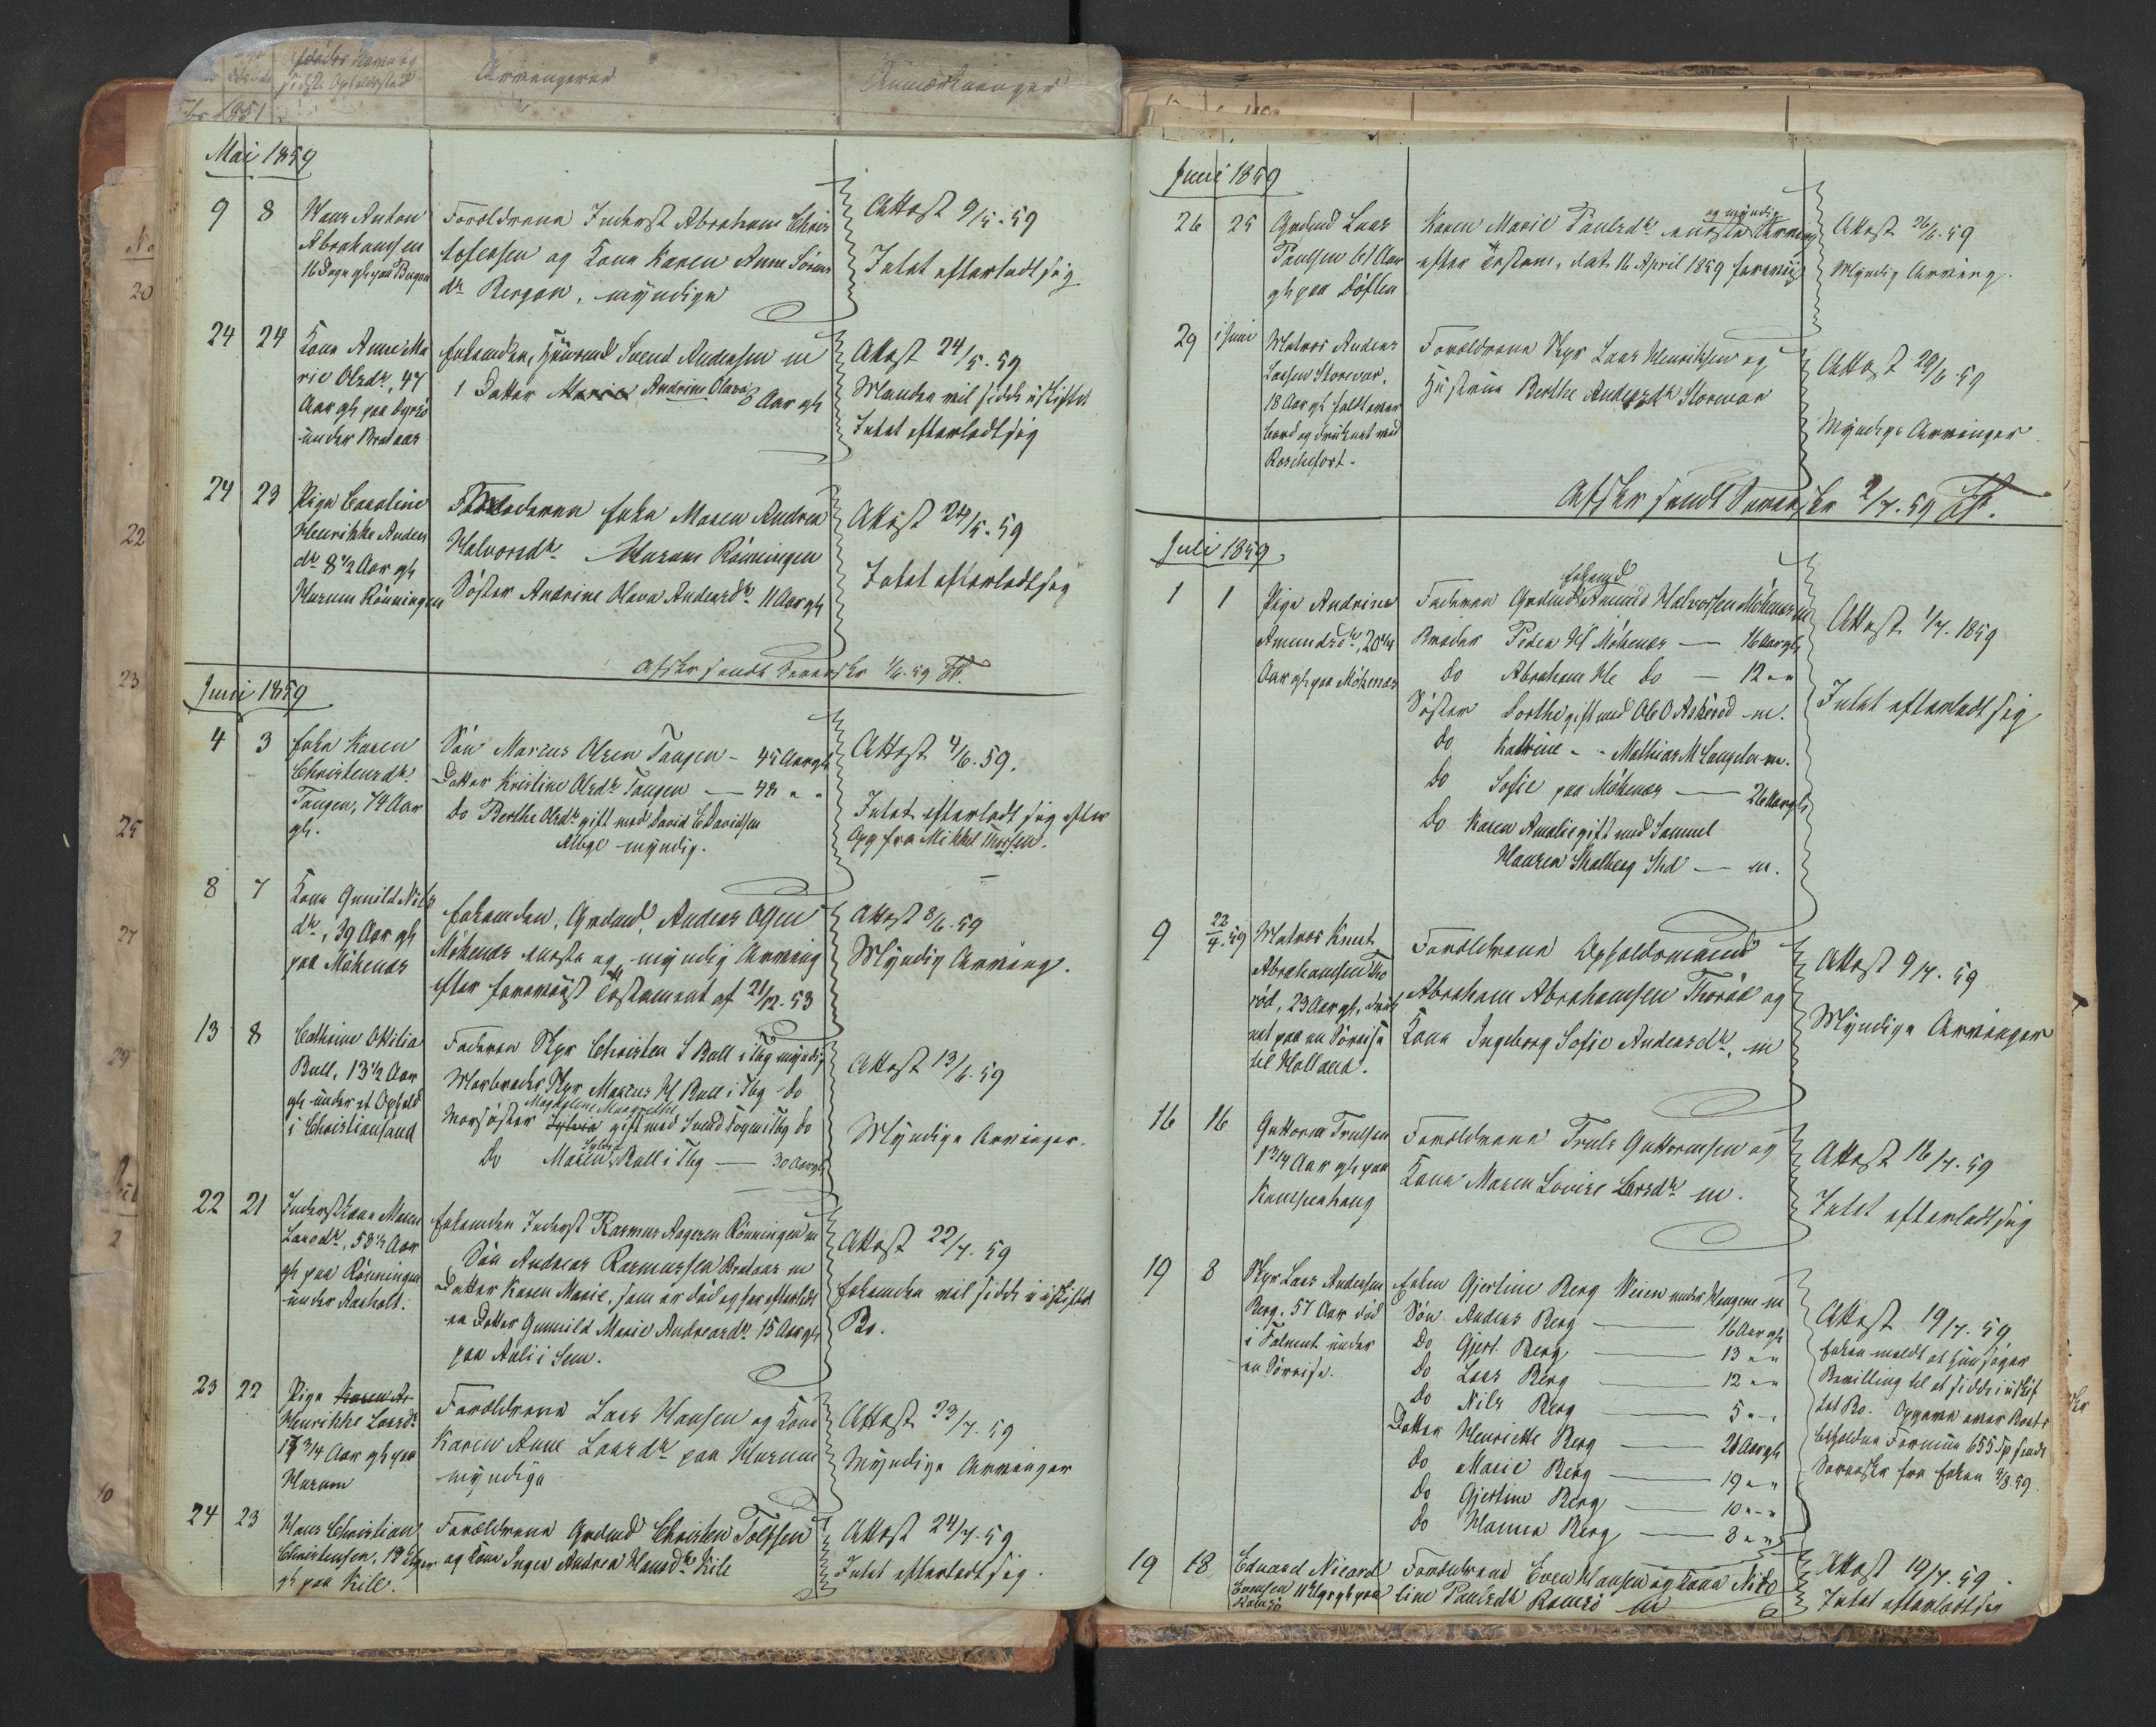 Afdödes Navn og
sidste Opholdssted
Arvingerne
Anmærkninger
1851
Mai 1859
9 8 Hans Anton
Abrahamsen
16 Dage gl. paa Bergan
Forældrene Inderst Abraham Chris
tofersen og Kona Karen Anne Sörens
dr Bergan, myndige
Attest 9/5. 59
Intet efterladt sig
24 24 Kona Anne Ma
rie Olsdr, 47
Aar gl. paa
under Brataas
Enkemanden, Huusmd Svend Andersen m
1 Datter Marie Andrine Olava 8 Aar gl
Attest 24/5. 59
Manden vil sidde i uskiftet
Intet efterladt sig
24 23 Pige Caroline
Henrikke Anders
dr 8 1/2 Aar gl
Husum Rönningen
Moderen Enke Maren Andrea
Halvorsdr Husum Rönningen
Söster Andrine Olava Andersdr 11 Aar gl
Attest 24/5. 59
Intet efterladt sig
Afskr sendt Sorenskr 1/6. 59
Juni 1859
4 3 Enke Karen
Christensdr
Tangen, 74 Aar
gl.
Sön Marcus Olsen Tangen - 45 Aar gl
Datter Kristine Olsdr Tangen — 48 " "
Do Berthe Olsdr gift med David E Davidsen
myndig.
Attest 4/6. 59.
Intet efterladt sig efter
Opg fra Mikkel Thorsen.
8 7 Kona Gunild Nils
dr, 39 Aar gl
paa Mökenæs
Enkemanden, Grdmd Anders Olsen
Mökenæs eneste og myndig Arving
efter foreviist Testament af 21/12. 53
Attest 8/6. 59
Myndig Arving.
13 8 Cathrine Ottilia
Bull, 13 1/2 Aar
gl under et Ophold
i Christiansand
Faderen Skpr Christen S Bull i Tbg myndig
Morbroder Skpr Marcus H Bull i Tbg - do
Magdalene Margrethe
Morsöster Sylvia gift med Svend Foyn i Tbg do
Sylvia
Do Maren Bull i Tbg — 30 Aar gl
Attest 13/6. 59
Myndige Arvinger.
22 21 Inderst Kona Maren
Larsdr, 58 1/2 Aar
gl paa Rönningen
under Aasholt.
Enkemanden Inderst Rasmus Aagesen Rönningen m
Sön Andreas Rasmussen Brataas m
Datter Karen Marie, som er död og har efterladt
en Datter Gunnild Marie Andreasdr 15 Aar gl
paa Auli i Sem.
Attest 22/7. 59
Enkemanden vil sidde i uskiftet
Bo.
23 22 Pige Karen A
Henrikke Larsdr
17 3/4 Aar gl paa
Husum
Forældrene Lars Hansen og Kona
Karen Anne Larsdr paa Husum
myndige
Attest 23/7. 59
Myndige Arvinger
24 23 Hans Christian
Christensen, 19 Uger
gl paa Kile.
Forældrene Grdmd Christen Tolfsen
og Kona Inger Andrea Hansdr Kile
Attest 24/7. 59
Intet efterladt sig.
Juni 1859
26 25 Grdmd Lars
Paulsen 61 Aar
gl paa
og myndig
Karen Marie Paulsdr eneste Arving
efter Testam. dat. 16 April 1859 foreviist
Attest 26/6. 59
Myndig Arving.
29 1 Juni Matros Anders
Larsen Storevar,
18 Aar gl. faldt over
bord og druknet ved
Roschefort.
Forældrene Skpr Lars Henriksen og
Hustrue Berthe Andersdr Storevar
Attest 29/6. 59
Myndige Arvinger
Afskr sendt Sorenskr 2/7. 59
Juli 1859
1 1 Pige Andrine
Amundsdr, 20 3/4
Aar gl paa Mökenæs
Enkemd
Faderen Grdmd Amund Halvorsen Mökenæs m
Broder Peder Hl Mökenæs — 16 Aar gl
Do Abraham Hl do — 12 " "
Söster Dorthe gift med Ole O Askerod - m.
Do Kathrine - " Mathias M Langelar - m.
Do Sofie paa Mökenæs — 26 Aar gl
Do Karen Amalie gift med Samuel
Hansen Skalberg Snd — m.
Attest 1/7. 1859
Intet efterladt sig
9 22/4. 59 Matros Knut
Abrahamsen Tho
röd, 23 Aar gl, druk
net paa en Söreise
til Holland.
Forældrene Opholdsmand
Abraham Abrahamsen Thoröd og
Kona Ingeborg Sofie Andersdr, m
Attest 9/7. 59
Myndige Arvinger
16 16 Guttorm Trulsen
1 3/4 Aar gl paa
Kampenhaug
Forældrene Truls Guttormsen og
Kona Maren Lovise Larsdr m.
Attest 16/7. 59
Intet efterladt sig
19 8 Skpr Lars Andersen
Berg. 57 Aar död
i Falmut under
en Söreise.
Enken Gjertine Berg Weien under Haugene m
Sön Anders Berg — 16 Aar gl
Do Gjert. Berg — 13 " "
Do Lars Berg — 12 " "
Do Nils Berg — 5 " "
Datter Henriette Berg — 21 Aar gl
Do Marie Berg — 19 " "
Do Gjertine Berg — 10 " "
Do Hanna Berg — 8 " "
Attest 19/7. 59
Enken meldt at hun söger
Bevilling til at sidde i uskif
tet Bo. Opgaven over Boets
beholdne Formue 655 Sp sendt
Sorenskr fra Enken 4/8. 59
19 18 Eduard Nicard
Evensen 11 Uger gl paa
Ramsö
Forældrene Even Hansen og Kona Nico
line Paulsdr Ramsö m
Attest 19/7. 59
Intet efterladt sig